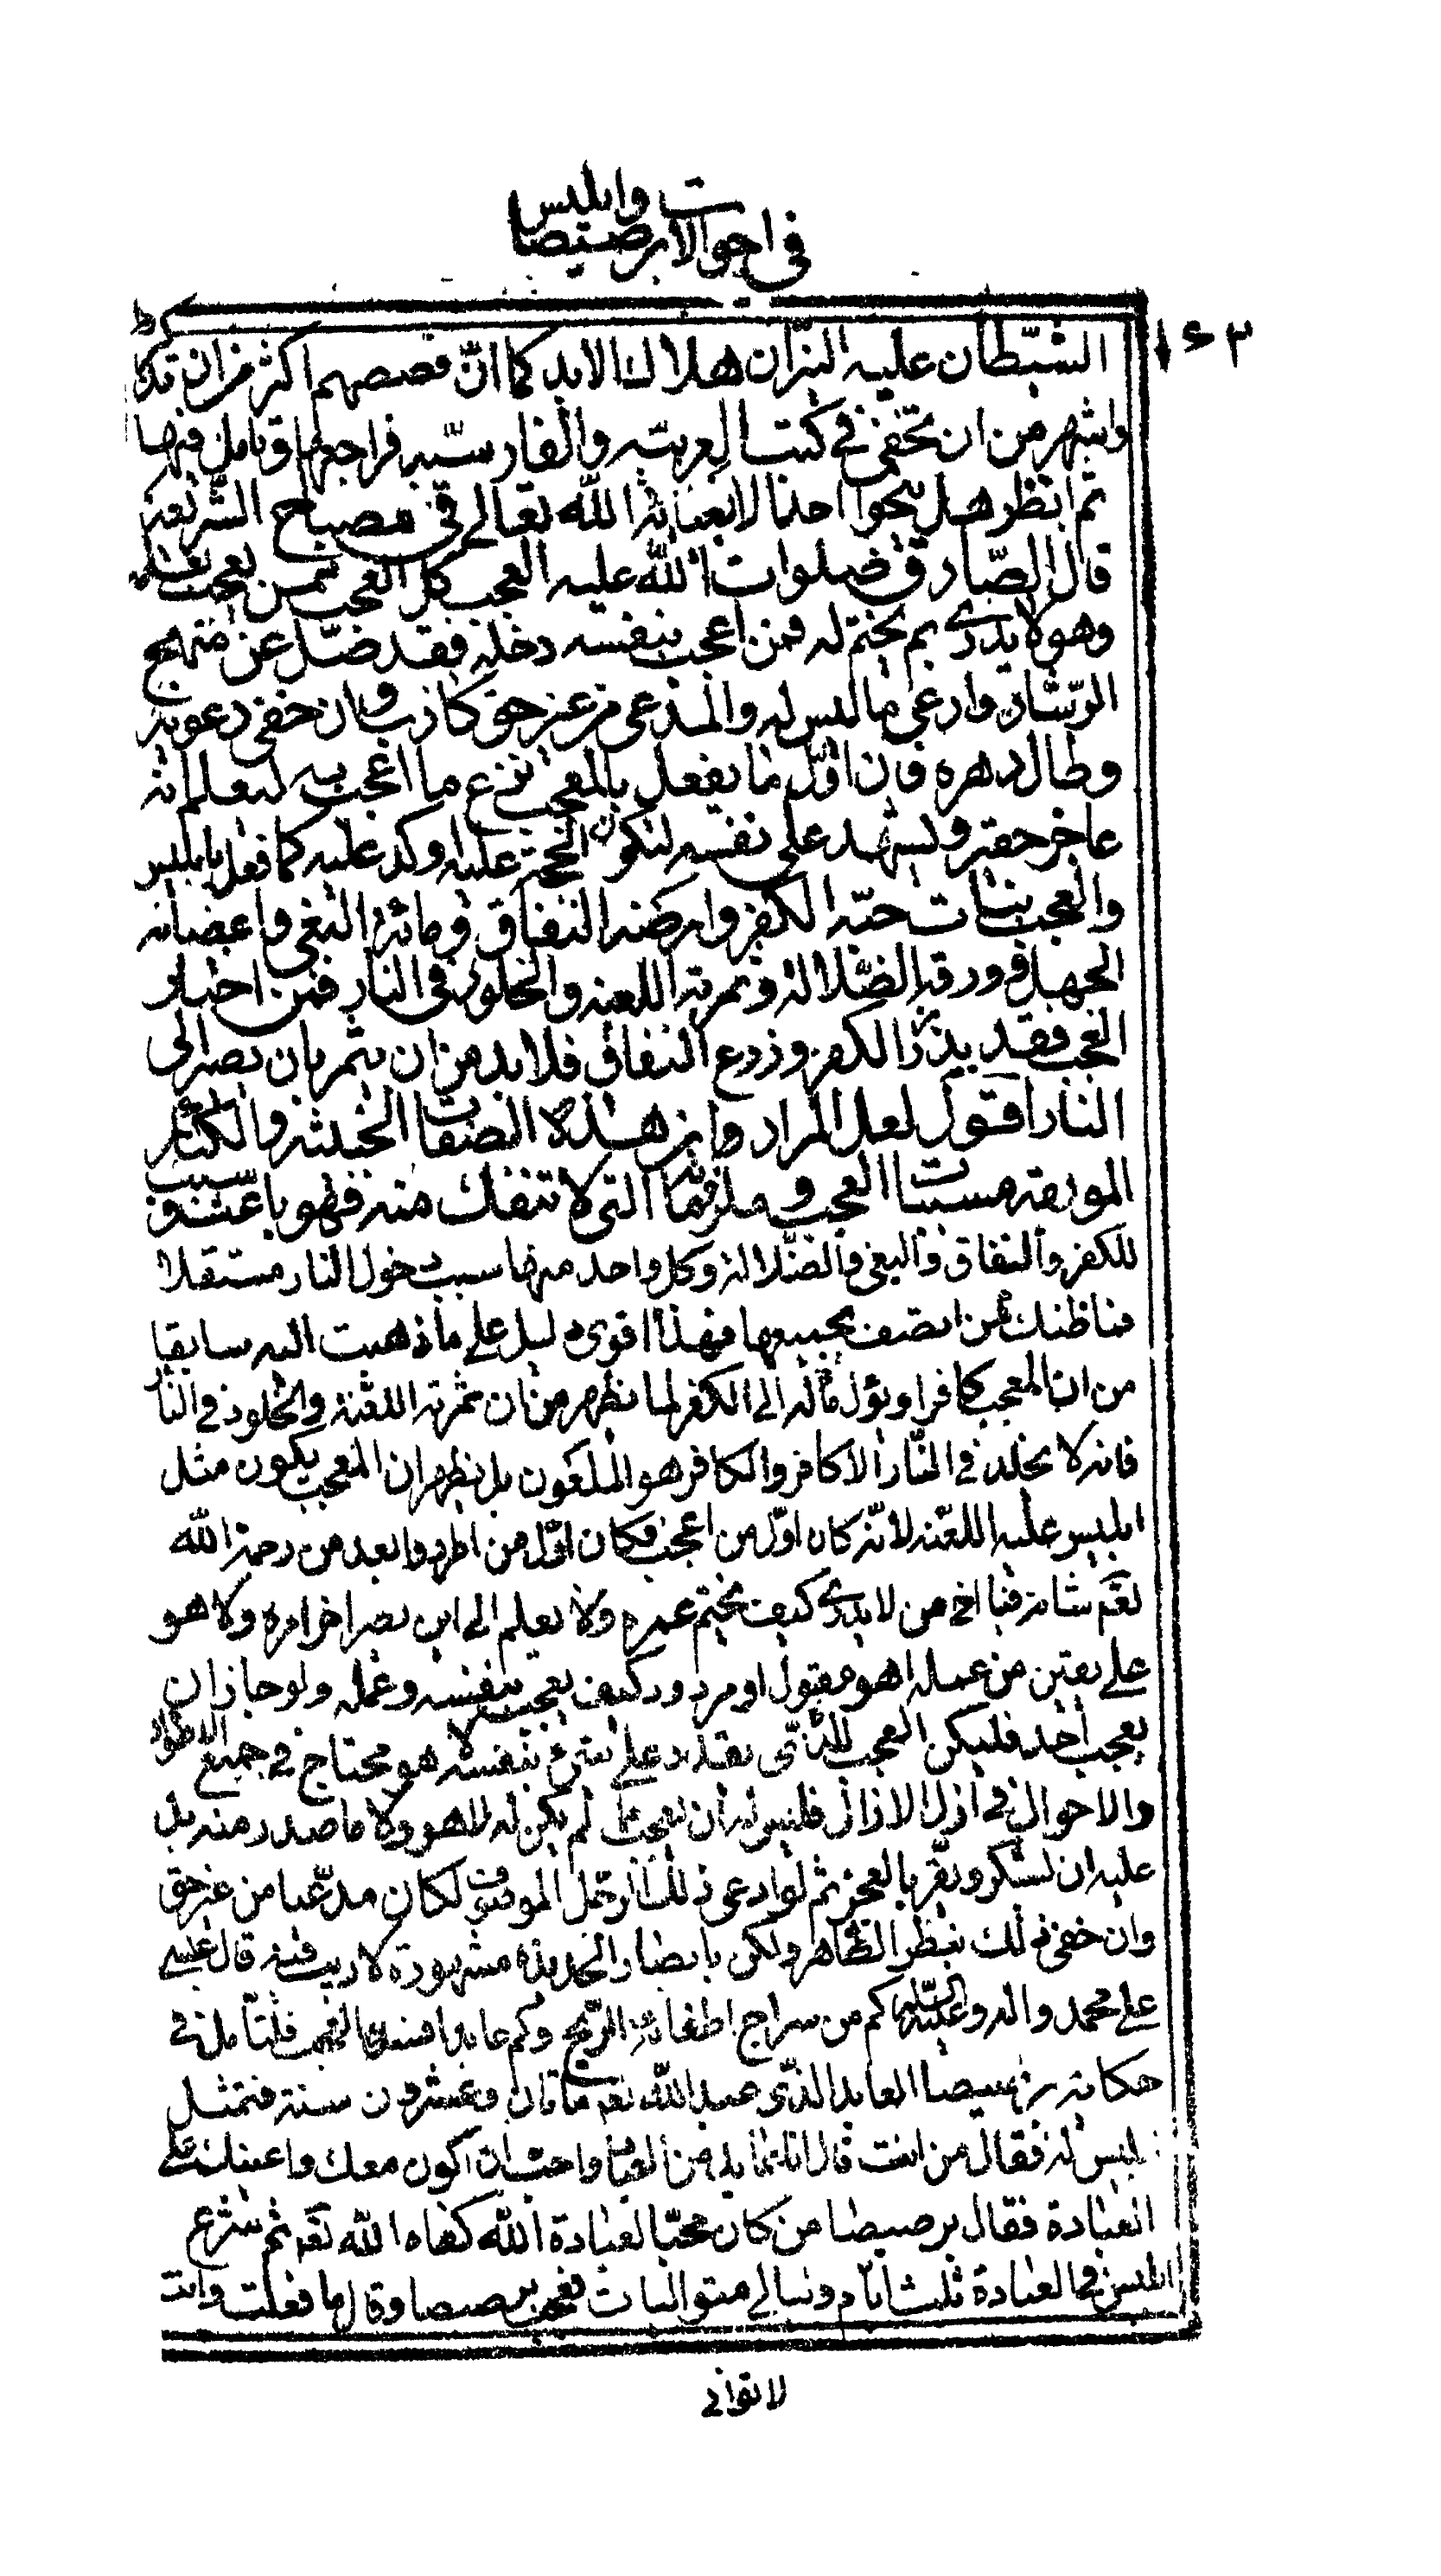 في احوالات برصيصا وابليس
١٤٣
الشيطان عليه النيران هلاك الابد كما ان قصصهم اكثر من ان تذكر
واشهر من ان تخفى في كتب العربية والفارسية فراجعها وتامل فيها
ثم انظر هل ينجوا احد الا بعناية الله تعالى في مصباح الشريعة
قال الصادق صلوات الله عليه العجب كل العجب ممن يعجب بعمله
وهو لا يدرى بم يختم له فمن اعجب بنفسه وفعله فقد ضل عن منهج
الرشاد وادعى ما ليس له والمدعى من غير حق كاذب وان خفى دعويه
وطال دهره فان اول ما يفعل بالمعجب نزع ما اعجب به ليعلم انه
عاجز حقير ويشهد على نفسه لتكون الحجة عليه اوكد عليه كما فعل بابليس
والعجب نبات حبه الكفر وارضه النفاق ومائه البغى واغصانه
الجهل وورقه الضلالة وثمرته اللعنه والخلود في النار فمن اختار
العجب فقد بذر الكفر وزرع النفاق فلابد من ان يثمر بان يصير الى
النار اقول لعل المراد وان هذه الصفات الخبيثه والكبائر
الموبقه مسببات العجب وملزماته التى لا تنفك منه فهو باعث وسبب
للكفر والنفاق والبغى والضلالة وكل واحد منها سبب دخول النار مستقلا
فما ظنك بمن اتصف بجميعها فهذا اقوى دليل على ما ذهبت اليه سابقا
من ان المعجب كافر او يؤل ماله الى الكفر لما يظهر من ان ثمرته اللعنة والخلود في النار
فانه لا يخلد في النار الا كافر والكافر هو الملعون بل يظهر ان المعجب يكون مثل
ابليس عليه اللعنه لانه كان اول من اعجب فكان اول من اطرد وابعد من رحمة الله
تعم شانه فيا اخى من لا يدرى كيف يختم عمره ولا يعلم الى اين يصير اخر امره ولا هو
على يقين من عمله اهو مقبول او مردود كيف يعجب بنفسه وعمله ولو جاز ان
يعجب احد فليكن العجب للذى يقدر على شئ بنفسه لا هو محتاج في جميع الاطوار
والاحوال في ازل الازال فليس له ان يعجب بما لم يكن له لا هو ولا ما صدر منه بل
عليه ان يشكر ويقر بالعجز ثم لو ادعى ذلك الرجل الموصوف لكان مدعيا من غير حق
وان خفى ذلك بنظر الظاهر ولكن بابصار الحديدة مشهودة لا ريب فيه قال عيسى
على محمد واله وعليه السلام كم من سراج اطفاته الريح وكم عابد افسده العجب فلتأمل في
حكاية برصيصا العابد الذى عبد الله تعم مائتان وعشرون سنة فتمثل
ابليس له فقال من انت قال انا عابد من العباد واحب ان اكون معك واعينك على
العبادة فقال برصيصا من كان محبا لعبادة الله كفاه الله تعم ثم شرع
ابليس في العبادة ثلث ايام وليالى متواليات فعجب برصيصا وقال ما فعلت وانت
لا تواني